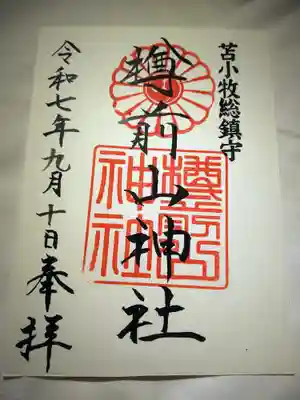 苫小牧総鎮守
樽前山神社
樽前山神社
令和七年九月十日奉拝